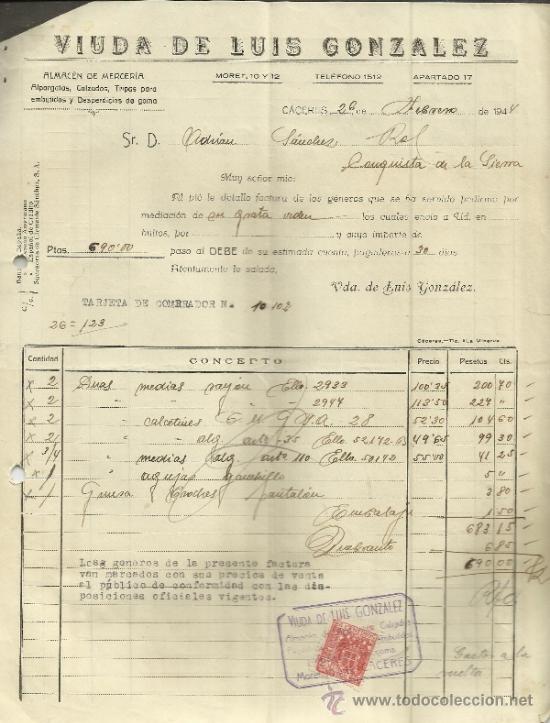 VIUDA DE LUIS GONZALEZ
ALMACÉN DE MERCERÍA
Alpargatas, Calzados, Tripas para
embutidos y Desperdicios de goma
MORET, 10 Y 12 TELÉFONO 1512 APARTADO 17
CÁCERES, 26 de Febrero de 194
Sr. D. Adrián Sánchez
Conquista de la Sierra
Muy señor mío:
Al pié le detallo factura de los géneros que se ha servido pedirme por
mediación de su grata orden los cuales envío a Ud. en
bultos, por y cuyo importe de
Ptas. 690'00 paso al DEBE de su estimada cuenta, pagaderas a 30 días
Atentamente le saluda,
Vda. de Luis González.
Banco de España
Español de Crédito
Sucesores de Clemente Sánchez, S. A.
TARJETA DE COMPRADOR N. 10102
26 = 123
Cáceres.—Tip. «La Minerva
Cantidad CONCEPTO Precio Pesetas Cts.
2 Dnas medias rayón Ello 2933 100'35 200 70
2 " " " 2947 113'50 227 "
2 " calcetines 28 52'30 104 60
2 " " alg. 35 Ello 52172 49'65 99 30
3/4 " medias alg. 110 Ello 50172 55'00 41 25
1 " agujas ganchillo 5 "
1 Gruesa broches pantalón 3 80
Embalaje 1 50
683 15
6 85
690 00
Los generos de la presente factura
van marcados con sus precios de venta
al público de conformidad con las dis-
posiciones oficiales vigentes.
VIUDA DE LUIS GONZALEZ
CACERES
todocoleccion.net
www.todocoleccion.net